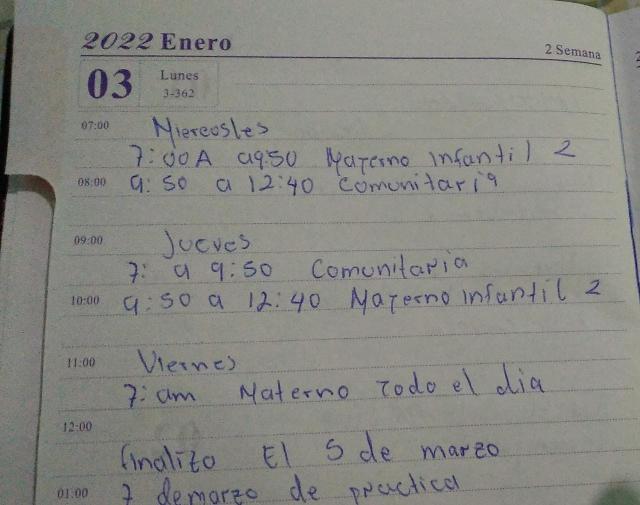 2022 Enero
2 Semana
03 Lunes
3-362
07:00 Miercosles
7:00A a9:50 Materno infantil 2
08:00 9:50 a 12:40 comunitaria
09:00 Jueves
7: a 9:50 Comunitaria
10:00 9:50 a 12:40 Materno infantil 2
11:00 Viernes
7:am Materno Todo el dia
12:00
finalizo El 5 de marzo
01:00 7 de marzo de practica